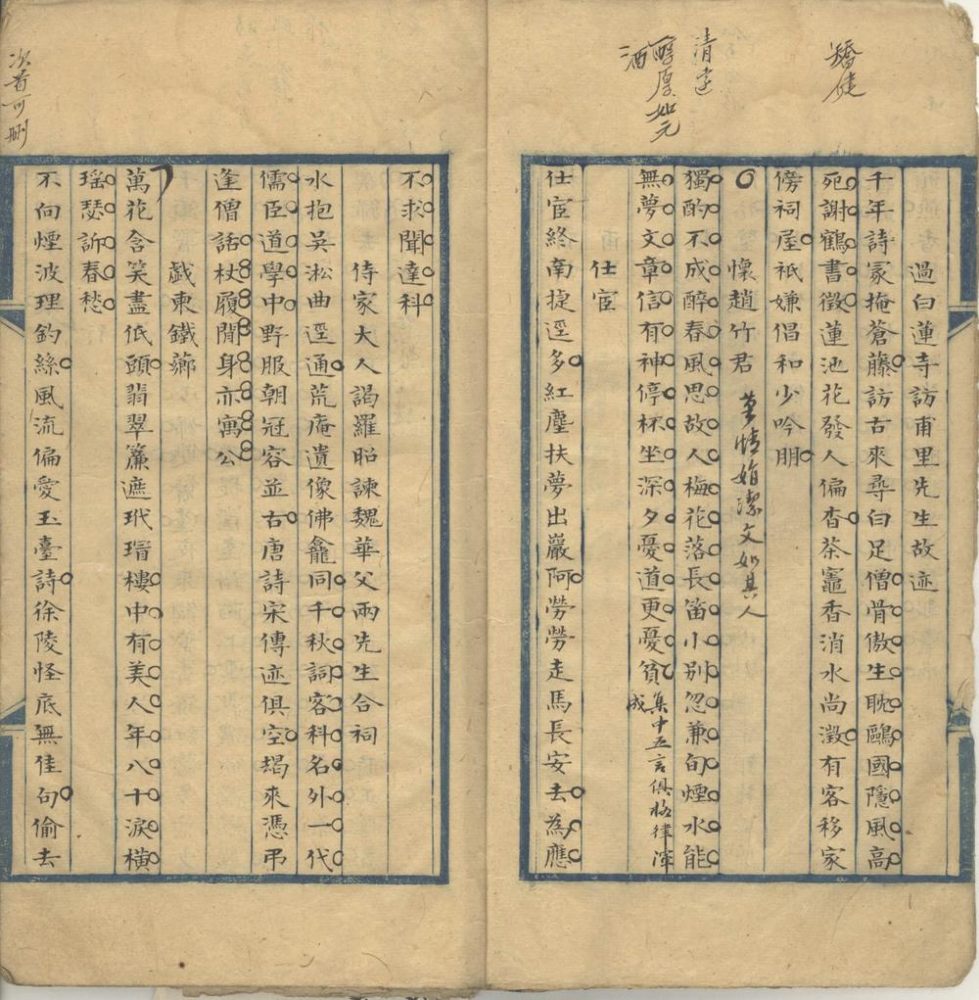 矯健
過白蓮寺訪甫里先生故迹
千年詩冢掩蒼藤訪古來尋白足僧骨傲生耽鷗國隱風高
宛謝鶴書徵蓮池花發人偏杳茶竈香消水尚澂有客移家
傍祠屋祇嫌倡和少吟朋
懷趙竹君
文如其人
清遠
醇厚如元
酒
獨酌不成醉春風思故人梅花落長笛小別忽兼旬煙水能
無夢文章信有神停杯坐深夕憂道更憂貧
集中五言俱格律渾
成
仕宦
仕宦終南捷逕多紅塵扶夢出巖阿勞勞走馬長安去為應
不求聞達科
侍家大人謁羅昭諫魏華父兩先生合祠
水抱吳淞曲逕通荒庵遺像佛龕同千秋詞客科名外一代
儒臣道學中野服朝冠容並古唐詩宋傳迹俱空朅來憑弔
逢僧話杖履閒身亦寓公
戲柬鐵薌
萬花含笑盡低頭翡翠簾遮玳瑁樓中有美人年八十淚橫
瑤瑟訴春愁
次首可刪
不向煙波理釣絲風流偏愛玉臺詩徐陵怪底無佳句偷去